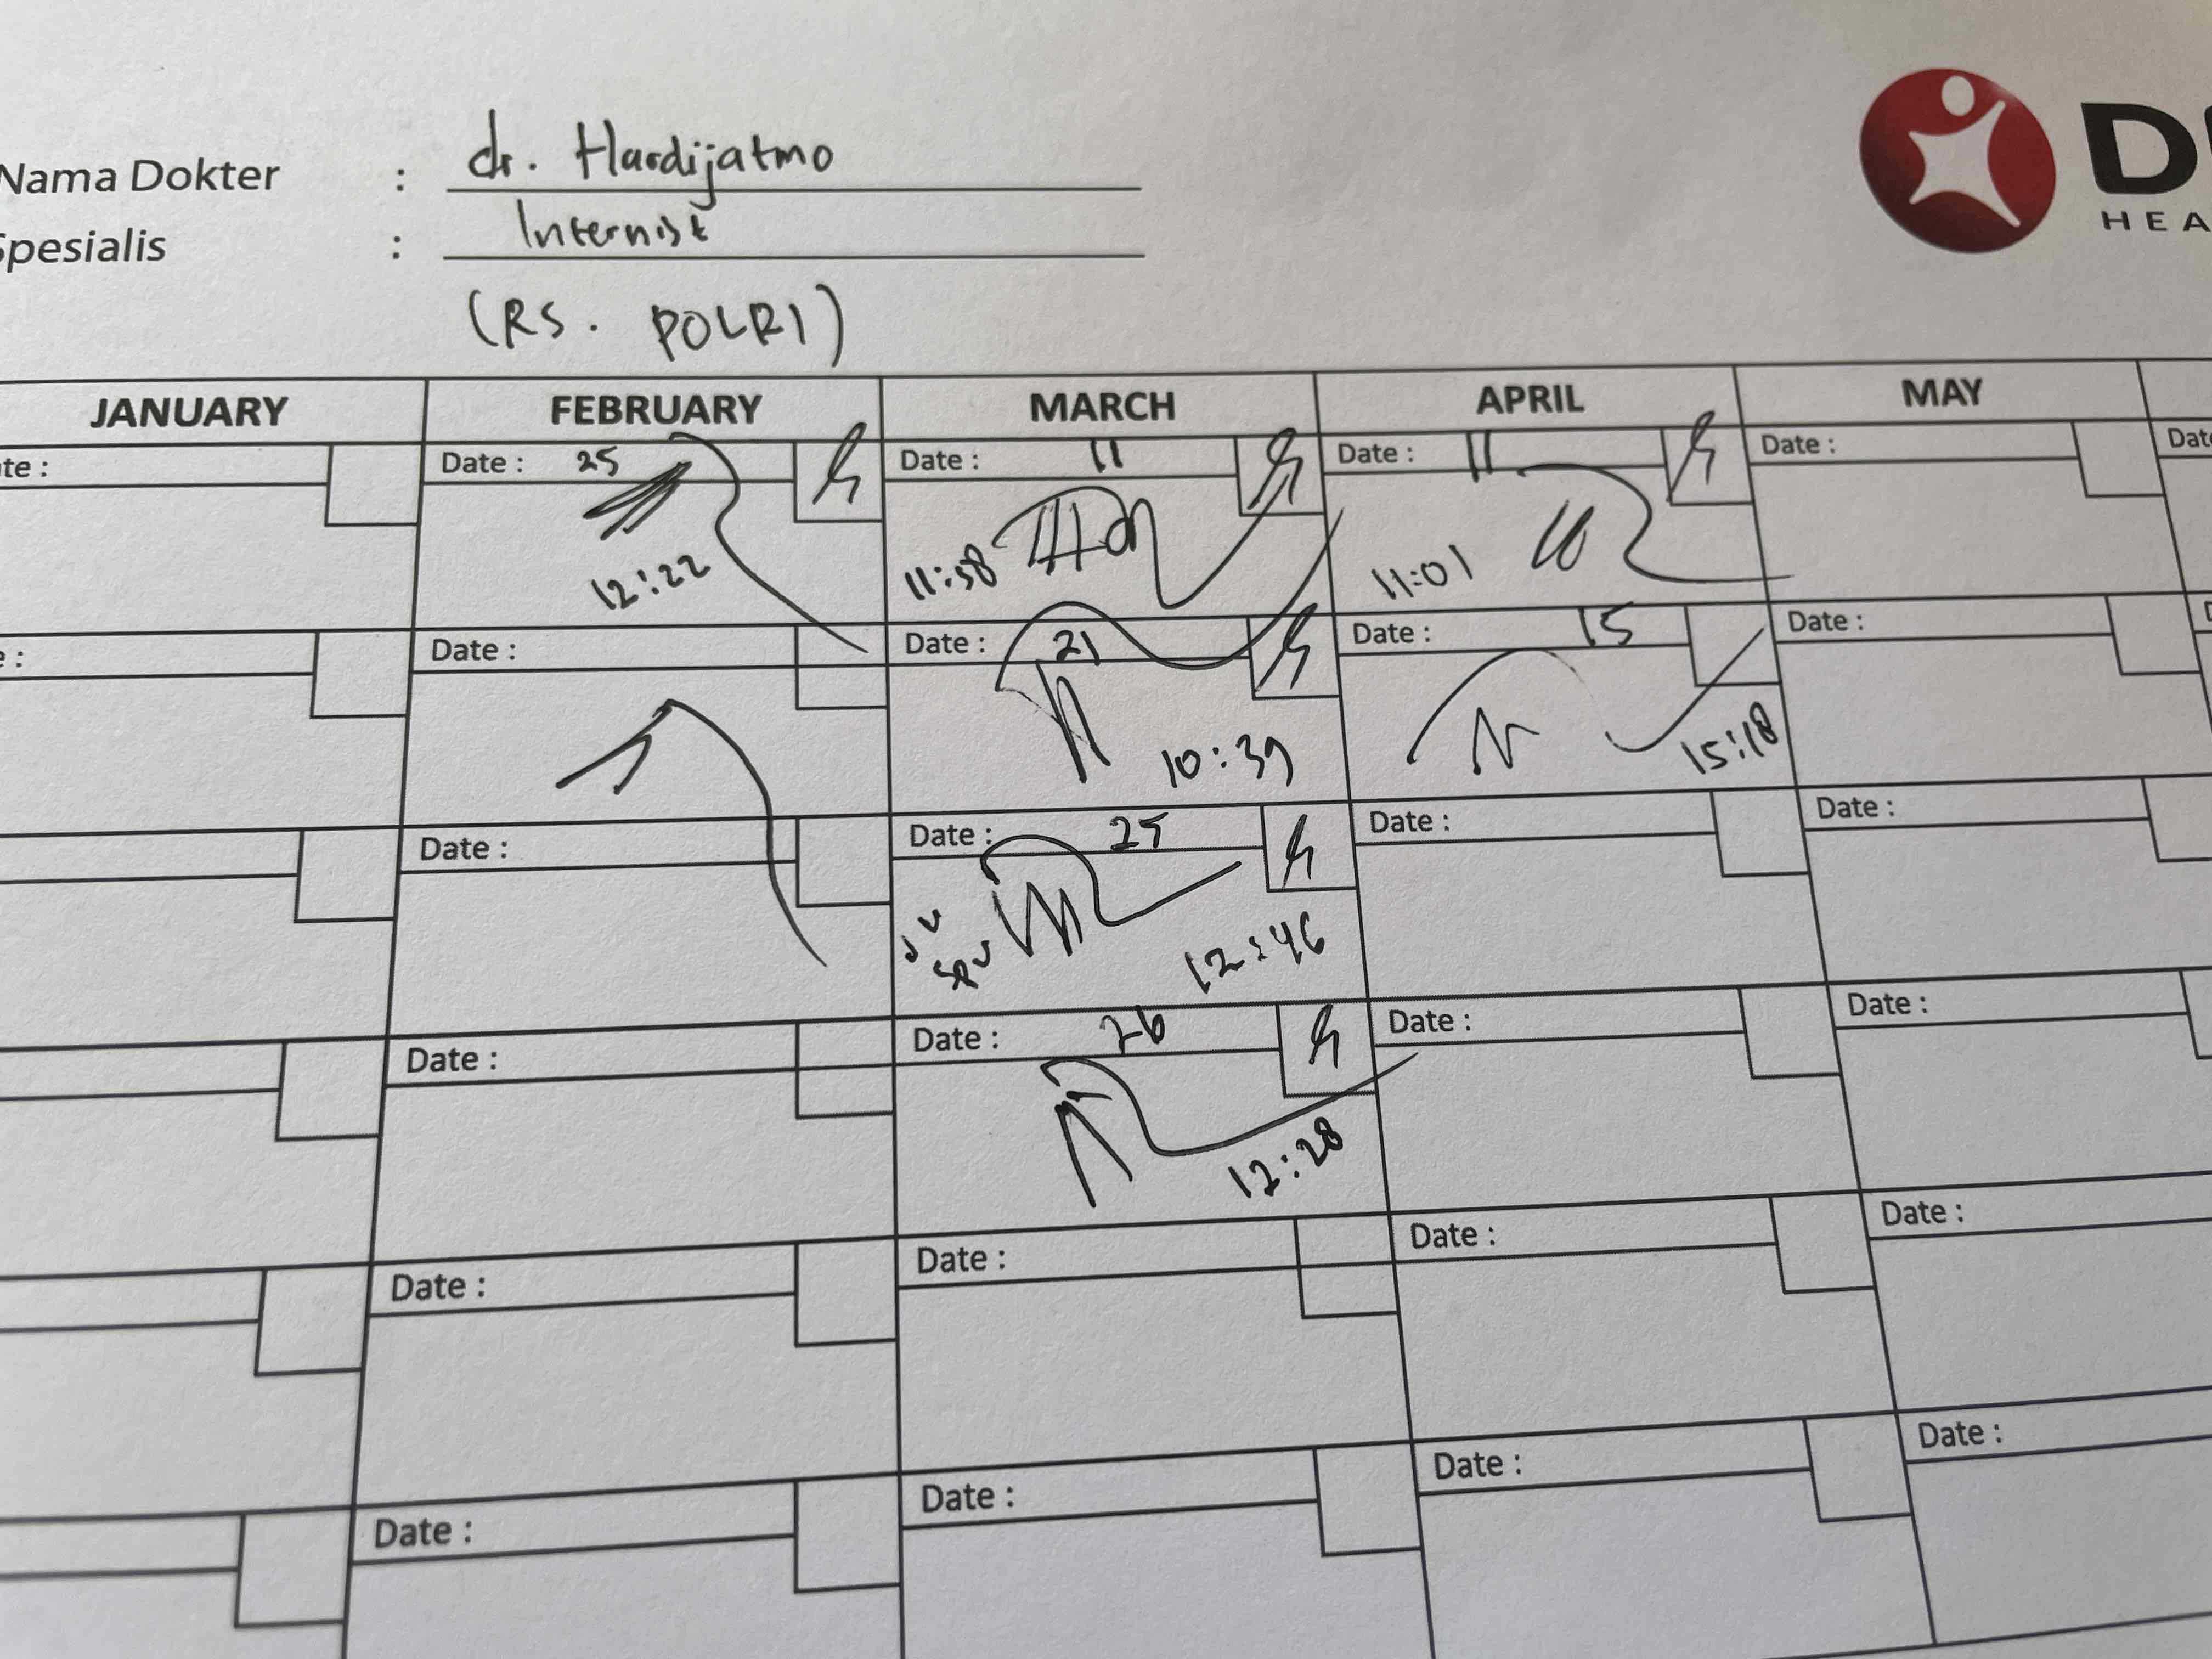 Nama Dokter : dr. Hardijatmo
Spesialis : Internist
(RS. POLRI)
HEA
JANUARY FEBRUARY MARCH APRIL MAY
te : Date : 25 Date : 11 Date : 11 Date : Date
12:22 11:58 11:01
e : Date : Date : 21 Date : 15 Date :
10:39 15:18
Date : Date : 25 Date : Date :
SPV 12:46
Date : Date : 26 Date : Date :
12:28
Date : Date : Date : Date :
Date : Date : Date : Date :